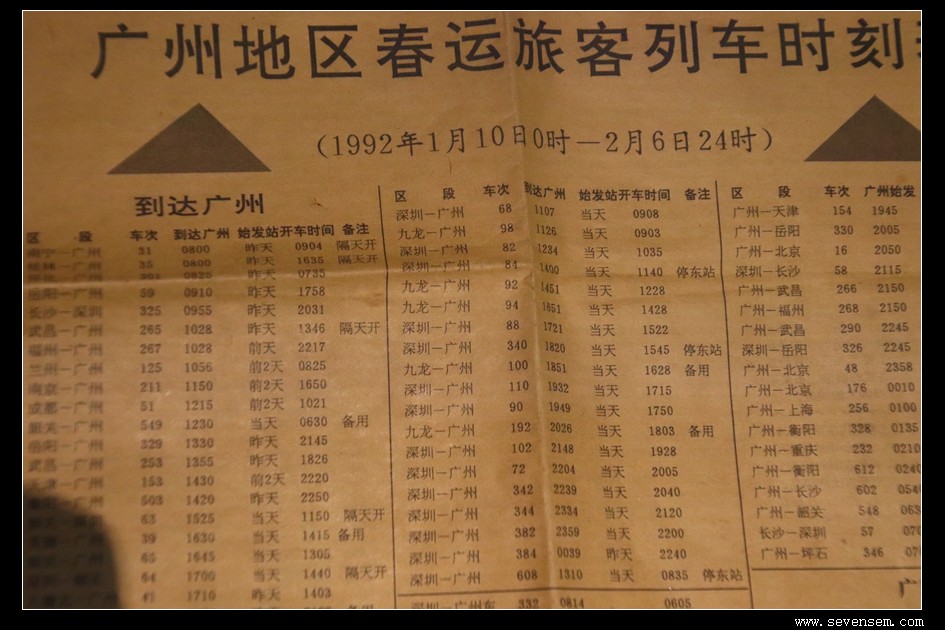 广州地区春运旅客列车时刻
(1992年1月10日0时—2月6日24时)
到达广州
区 段 车次 到达广州 始发站开车时间 备注
南宁—广州 31 0800 昨天 0904 隔天开
—广州 35 0800 昨天 1635 隔天开
0825 昨天 0735
岳阳—广州 59 0910 昨天 1758
长沙—深圳 325 0955 昨天 2031
武昌—广州 265 1028 昨天 1346 隔天开
福州—广州 267 1028 前天 2217
兰州—广州 125 1056 前2天 0825
南京—广州 211 1150 前2天 1650
成都—广州 51 1215 前2天 1021
韶关—广州 549 1230 当天 0630 备用
岳阳—广州 329 1330 昨天 2145
武昌—广州 253 1355 昨天 1826
天津—广州 153 1430 前2天 2220
—广州 503 1420 昨天 2250
—广州 63 1525 当天 1150 隔天开
—广州 39 1630 当天 1415 备用
—广州 65 1645 当天 1305
—广州 64 1700 当天 1440 隔天开
41 1710 1403
区 段 车次 到达广州 始发站开车时间 备注
深圳—广州 68 1107 当天 0908
九龙—广州 98 1126 当天 0903
深圳—广州 82 1234 当天 1035
深圳—广州 84 1400 当天 1140 停东站
九龙—广州 92 1451 当天 1228
九龙—广州 94 1651 当天 1428
深圳—广州 88 1721 当天 1522
深圳—广州 340 1820 当天 1545 停东站
九龙—广州 100 1851 当天 1628 备用
深圳—广州 110 1932 当天 1715
深圳—广州 90 1949 当天 1750
九龙—广州 192 2026 当天 1803 备用
深圳—广州 102 2148 当天 1928
深圳—广州 72 2204 当天 2005
深圳—广州 342 2239 当天 2040
深圳—广州 344 2334 当天 2120
深圳—广州 382 2359 当天 2200
深圳—广州 384 0039 昨天 2240
深圳—广州 608 1310 当天 0835 停东站
深圳—广州东 332 0814 0605
区 段 车次 广州始发
广州—天津 154 1945
广州—岳阳 330 2005
广州—北京 16 2050
深圳—长沙 58 2115
广州—武昌 266 2150
广州—福州 268 2150
广州—武昌 290 2245
深圳—岳阳 326 2245
广州—北京 48 2358
广州—北京 176 0010
广州—上海 256 0100
广州—衡阳 328 0135
广州—重庆 232 0210
广州—衡阳 612 0240
广州—长沙 602 054
广州—韶关 548 063
长沙—深圳 57 07
广州—坪石 346 07
广
www.sevensem.com